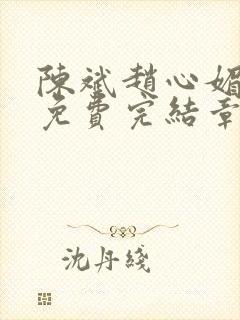 陳斌趙心媚
免費完結章
沈丹綫